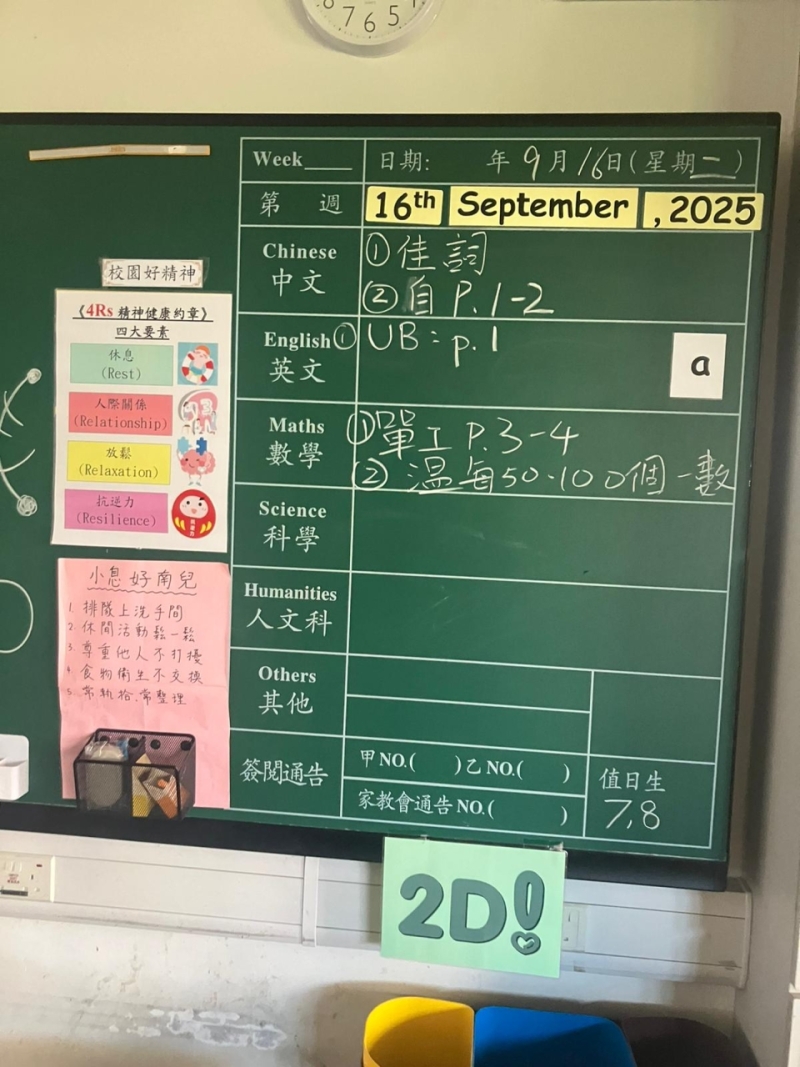 8 7 6 5
Week____ 日期: 年9月16日(星期二)
第 週 16th September , 2025
Chinese
中文
①佳詞
②自 P.1-2
English
英文
① UB: p.1
a
Maths
數學
①單工 P.3-4
②溫每50-100個一數
Science
科學
Humanities
人文科
Others
其他
簽閱通告
甲NO.( )乙NO.( )
家教會通告NO.( )
值日生
7,8
校園好精神
《4Rs 精神健康約章》
四大要素
休息
(Rest)
人際關係
(Relationship)
放鬆
(Relaxation)
抗逆力
(Resilience)
小息好南兒
1. 排隊上洗手間
2. 休閒活動鬆一鬆
3. 尊重他人不打擾
4. 食物衛生不交換
5. 常執拾,常整理
2D!